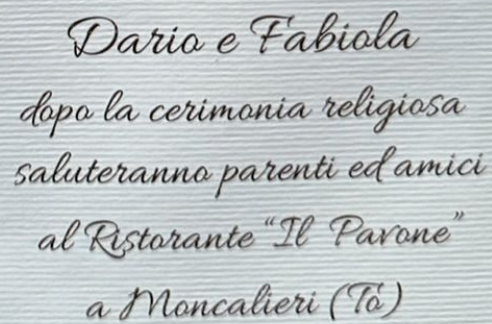 Dario e Fabiola
dopo la cerimonia religiosa
saluteranno parenti ed amici
al Ristorante "Il Pavone"
a Moncalieri (To)